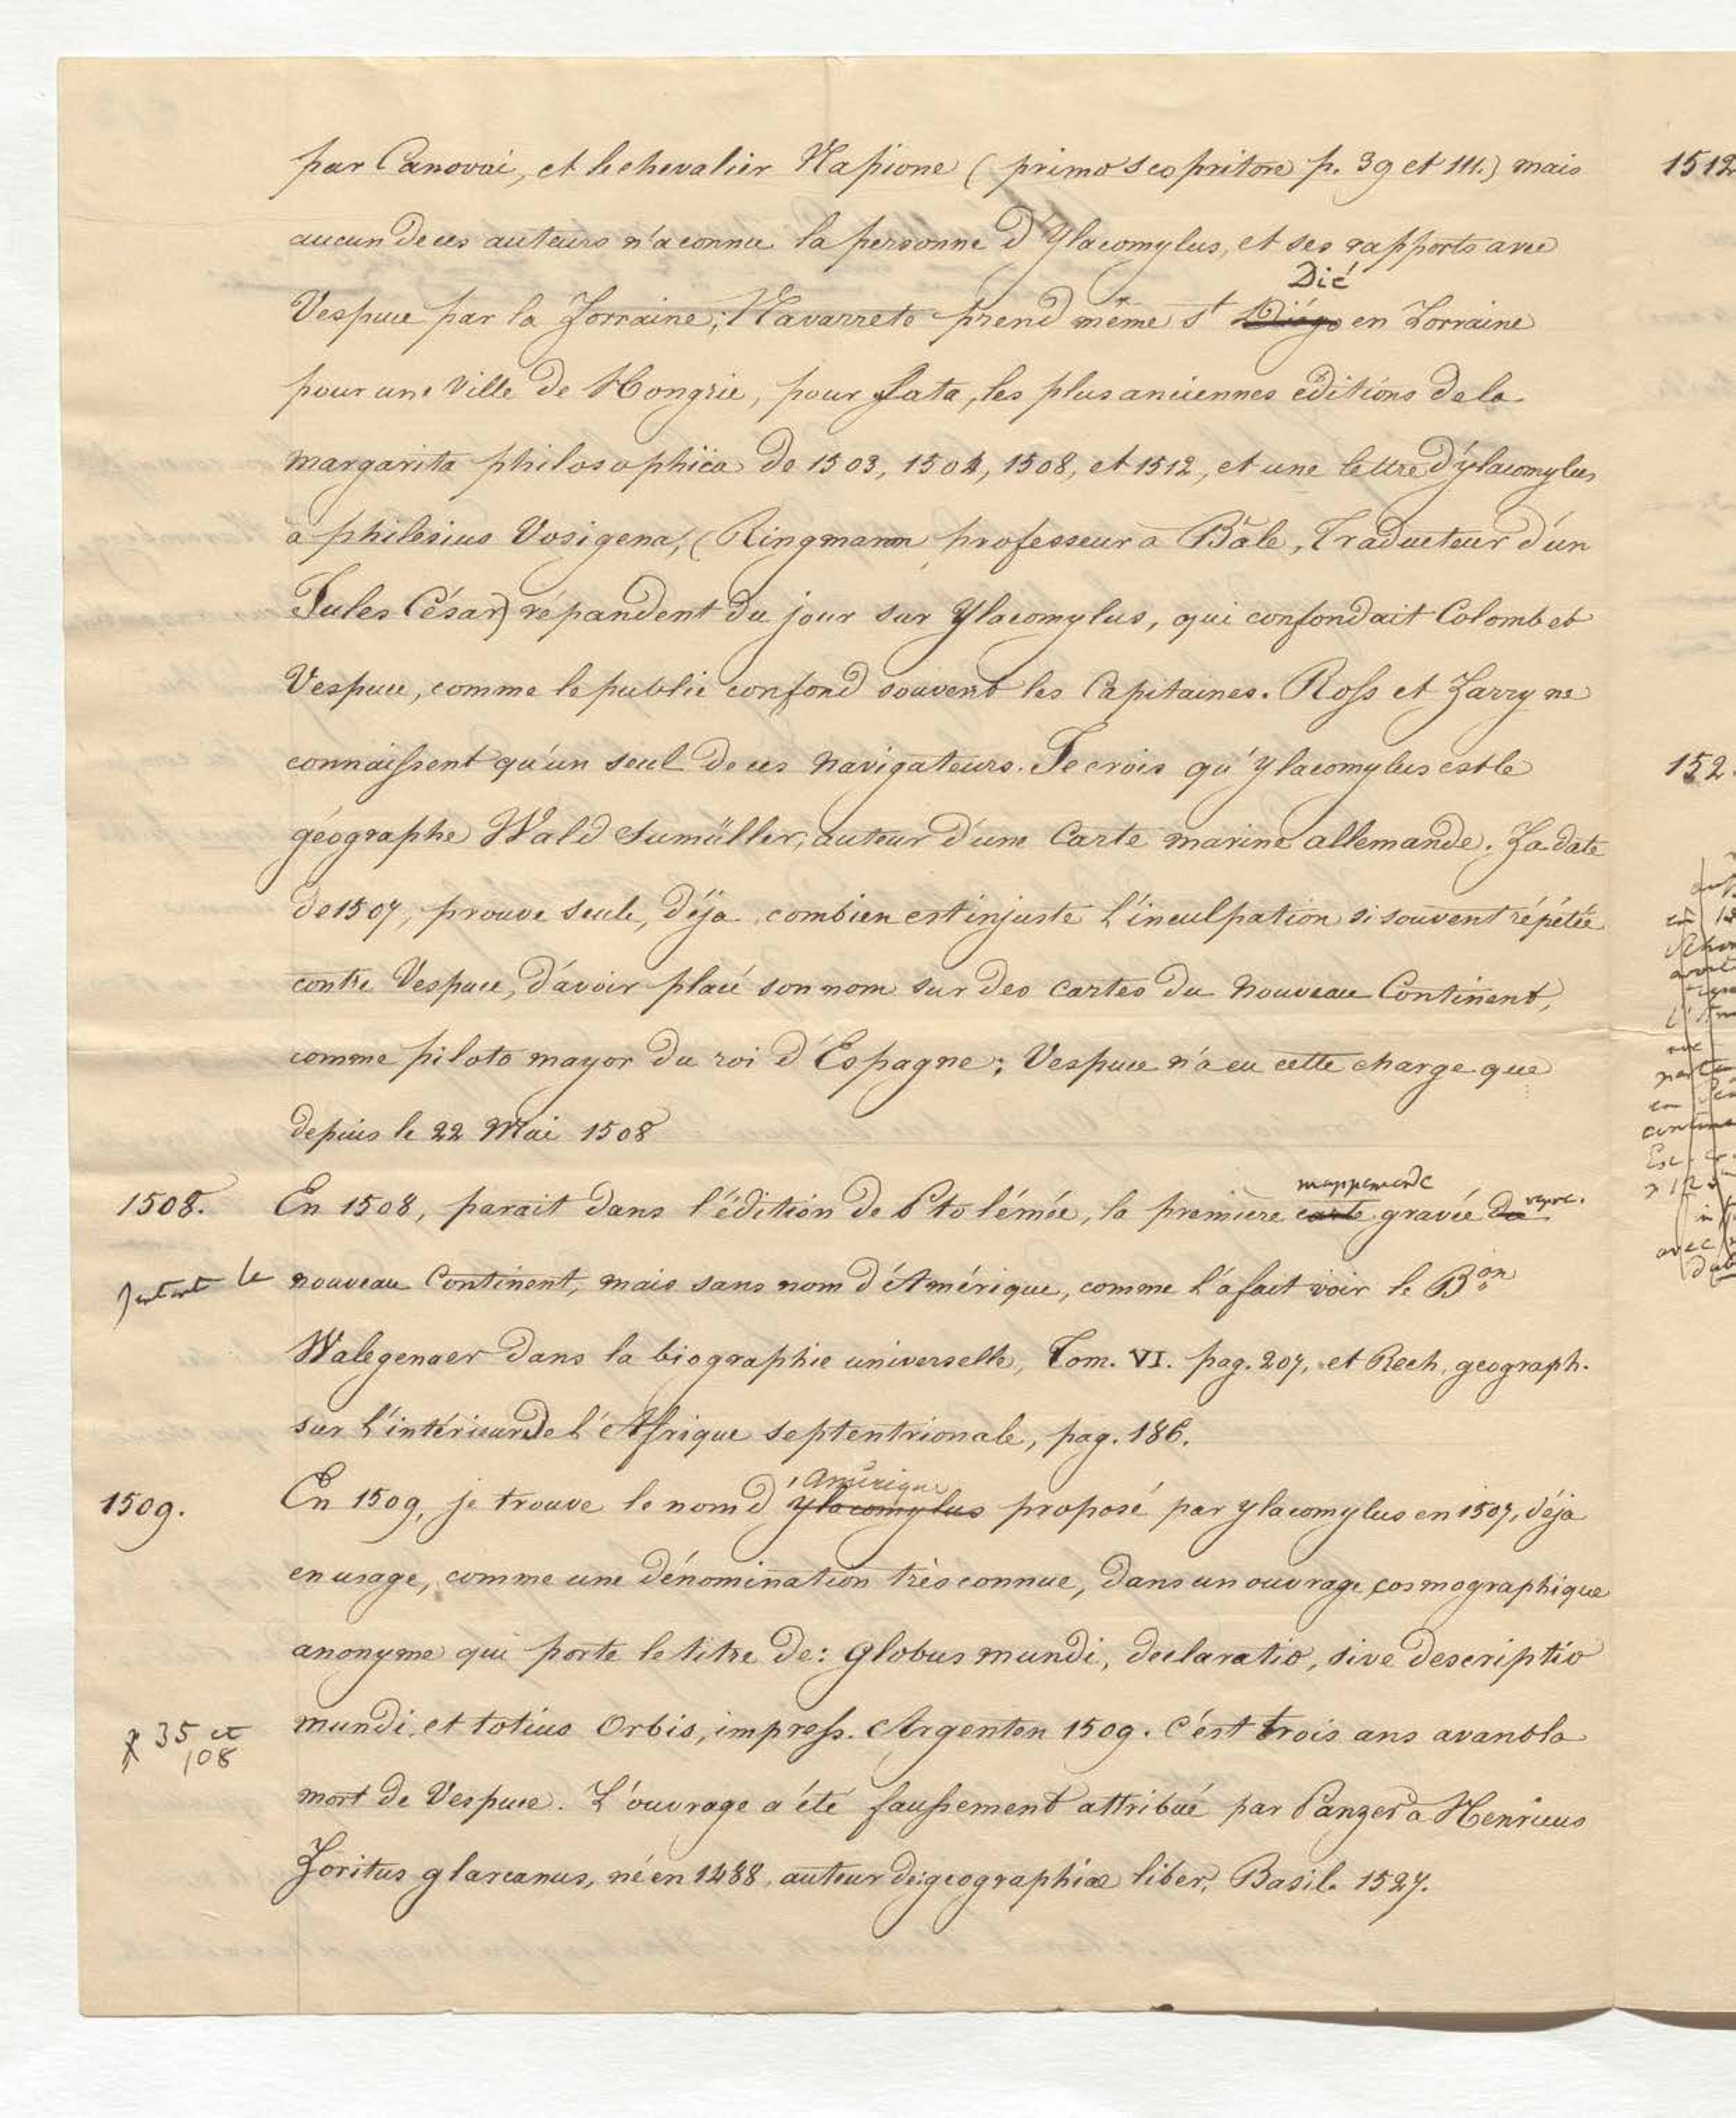 par Canovai, et le chevalier Napione (primo scopritore p. 39 et 111.) mais
aucun de ces auteurs n'a connu la personne d'Ylacomylus, et ses rapports avec
Dié
Vespuce par la Lorraine; Navarrete prend même St Diégo en Lorraine
pour une Ville de Hongrie, pour fata, les plus anciennes éditions de la
margarita philosophica de 1503, 1504, 1508, et 1512, et une lettre d'ylacomylus
à philesius Vosigena, (Ringmann, professeur à Bâle, Traducteur d'un
Jules César) répandent du jour sur Ylacomylus, qui confondait Colomb et
Vespuce, comme le public confond souvent les Capitaines. Ross et Parry ne
connaissent qu'un seul de ces navigateurs. Je crois qu'ylacomylus est le
géographe Wald Sumüller, auteur d'une Carte marine allemande. La date
de 1507, prouve seule, déja combien est injuste l'inculpation si souvent répétée
contre Vespuce, d'avoir placé son nom sur des cartes du nouveau Continent,
comme piloto mayor du roi d'Espagne; Vespuce n'a eu cette charge que
depuis le 22 Mai 1508
mappemonde
1508. En 1508, parait dans l'édition de Ptolémée, la première carte gravée du repré-
sentant le nouveau Continent, mais sans nom d'Amérique, comme l'a fait voir le Bon
Walegenaer dans la biographie universelle, Tom. VI. pag. 207, et Rech. geograph.
sur l'intérieur de l'Afrique septentrionale, pag. 186.
Amérique
1509. En 1509, je trouve le nom d'ylacomylus proposé par ylacomylus en 1507, déja
en usage, comme une dénomination très connue, dans un ouvrage cosmographique
anonyme qui porte le titre de: globus mundi, declaratio, sive descriptio
p 35 et 108
mundi, et totius Orbis, impress. Argenten 1509. C'est trois ans avant la
mort de Vespuce. L'ouvrage a été faussement attribué par Panzer à Henricus
Loritus glareanus, né en 1488, auteur de: geographiæ liber, Basil. 1527.
1512
152